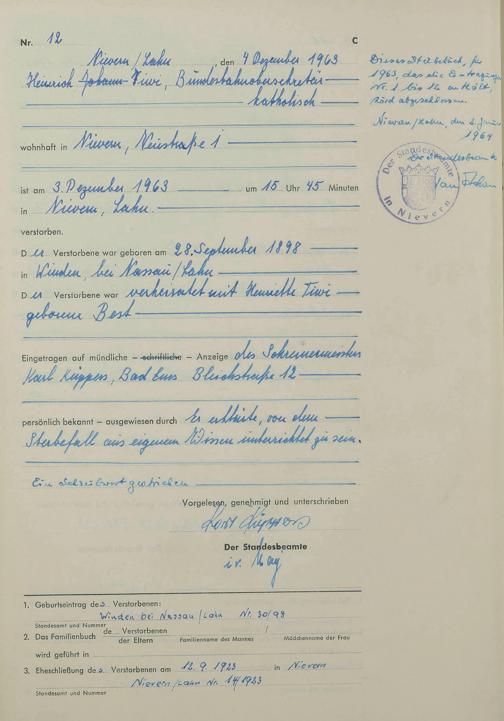 Nr. 12
C
Nievern/Lahn, den 4 Dezember 1963
Heinrich Johann Tiwi, Bundesbahnobersekretär
katholisch
wohnhaft in Nievern, Neustraße 1
ist am 3. Dezember 1963 um 15 Uhr 45 Minuten
in Nievern, Lahn.
verstorben.
Der Verstorbene war geboren am 28. September 1898
in Winden, bei Nassau/Lahn
Der Verstorbene war verheiratet mit Henriette Tiwi
geborene Best
Eingetragen auf mündliche – schriftliche – Anzeige des Schreinermeisters
Karl Küppers, Bad Ems Bleichstraße 12
persönlich bekannt – ausgewiesen durch Er erklärte, von dem
Sterbefall aus eigenem Wissen unterrichtet zu sein.
Ein Schreibwort gestrichen
Vorgelesen, genehmigt und unterschrieben
Karl Küppers
Der Standesbeamte
i.v. May
1. Geburtseintrag des Verstorbenen:
Winden bei Nassau/Lahn Nr. 30/98
Standesamt und Nummer
2. Das Familienbuch de Verstorbenen
der Eltern
Familienname des Mannes
Mädchenname der Frau
wird geführt in
3. Eheschließung des Verstorbenen am 12.9.1923 in Nievern
Nievern/Lahn Nr. 14/1923
Standesamt und Nummer
Dieses Sterbebuch, für
1963, das die Eintragungen
Nr. 1 bis 12 enthält,
wird abgeschlossen.
Nievern/Lahn, den 2. Januar
1964
Der Standesbeamte
Der Standesbeamte
in Nievern